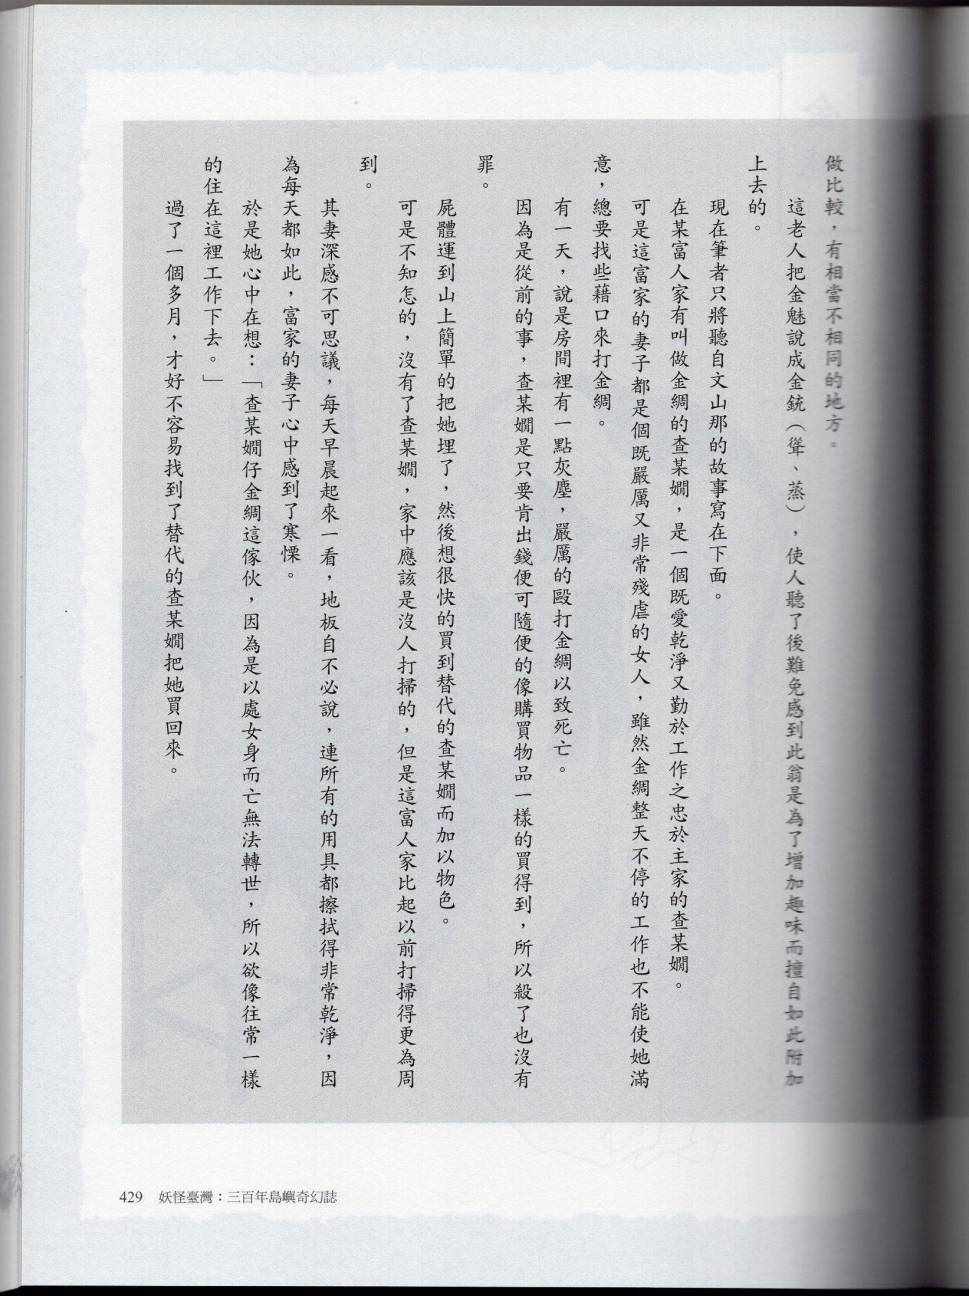 做比較，有相當不相同的地方。
這老人把金魅說成金銃（聳、蒸），使人聽了後難免感到此翁是為了增加趣味而擅自如此附加
上去的。
現在筆者只將聽自文山那的故事寫在下面。
在某富人家有叫做金綢的查某嫺，是一個既愛乾淨又勤於工作之忠於主家的查某嫺。
可是這富家的妻子都是個既嚴厲又非常殘虐的女人，雖然金綢整天不停的工作也不能使她滿
意，總要找些藉口來打金綢。
有一天，說是房間裡有一點灰塵，嚴厲的毆打金綢以致死亡。
因為是從前的事，查某嫺是只要肯出錢便可隨便的像購買物品一樣的買得到，所以殺了也沒有
罪。
屍體運到山上簡單的把她埋了，然後想很快的買到替代的查某嫺而加以物色。
可是不知怎的，沒有了查某嫺，家中應該是沒人打掃的，但是這富人家比起以前打掃得更為周
到。
其妻深感不可思議，每天早晨起來一看，地板自不必說，連所有的用具都擦拭得非常乾淨，因
為每天都如此，富家的妻子心中感到了寒慄。
於是她心中在想：「查某嫺仔金綢這傢伙，因為是以處女身而亡無法轉世，所以欲像往常一樣
的住在這裡工作下去。」
過了一個多月，才好不容易找到了替代的查某嫺把她買回來。
429 妖怪臺灣：三百年島嶼奇幻誌